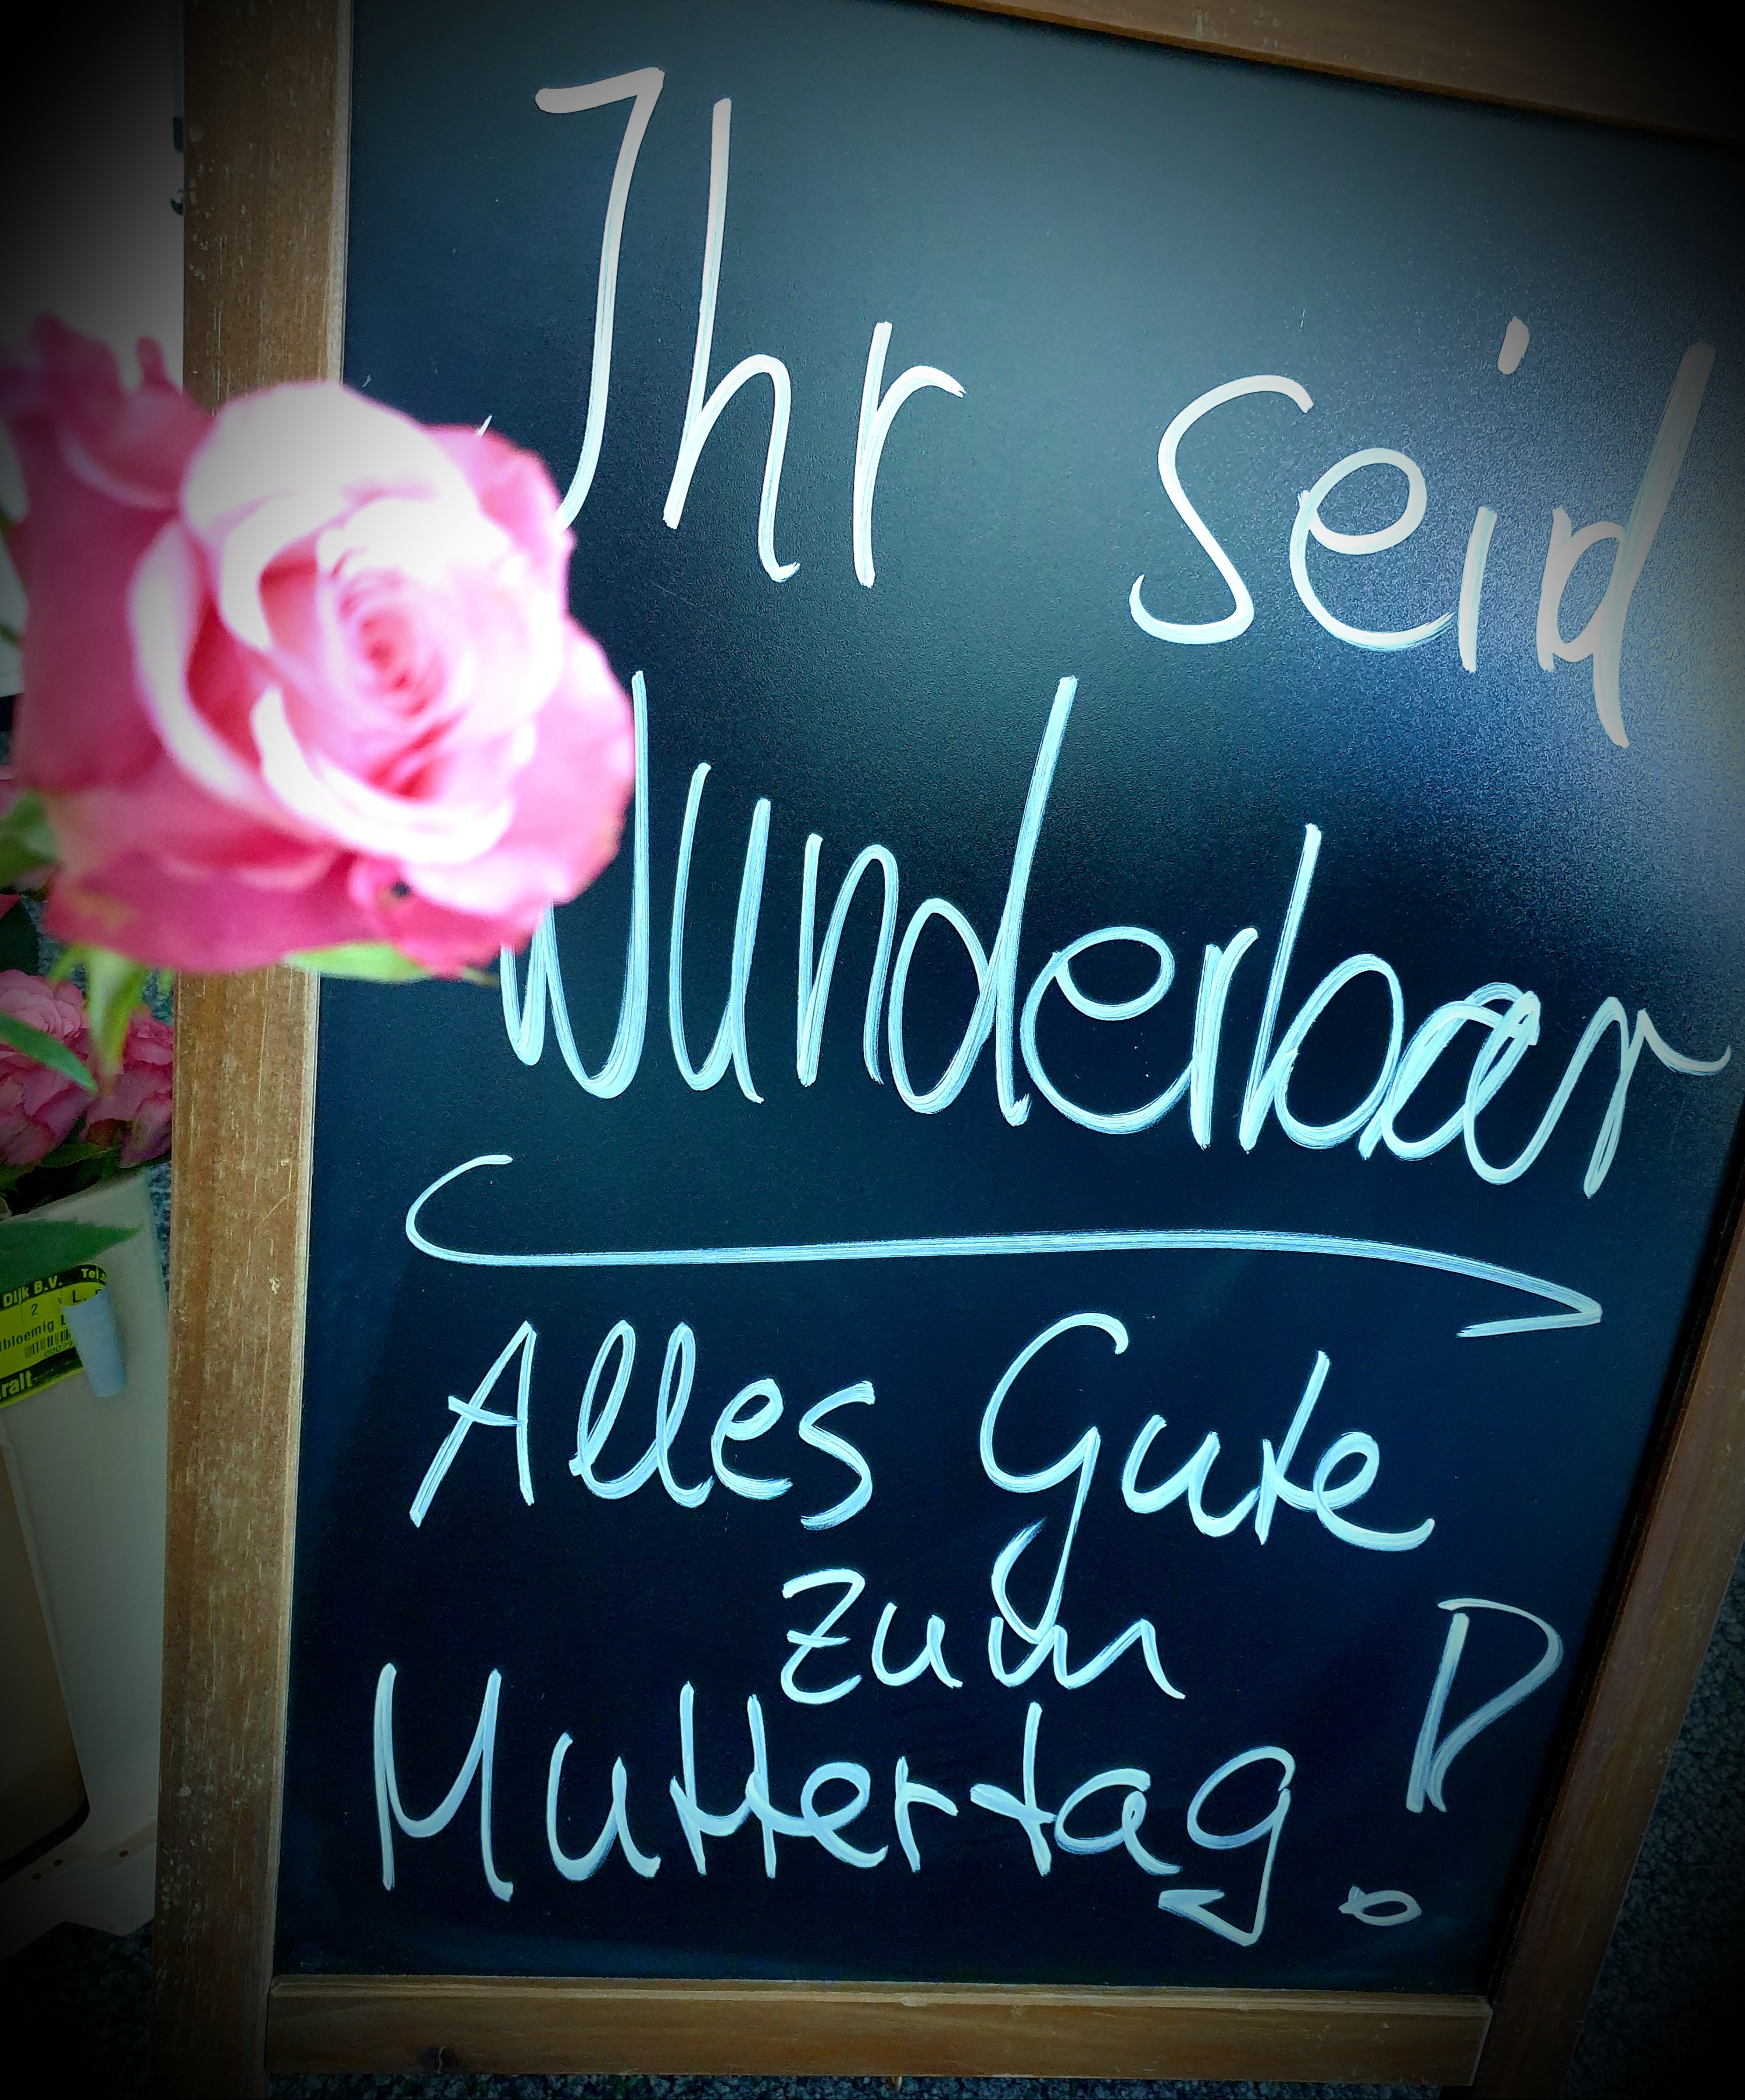 Ihr seid
Wunderbar
Alles Gute
zum
Muttertag!
Dijk B.V. Tel.
2 L.
tbloemig
ralt